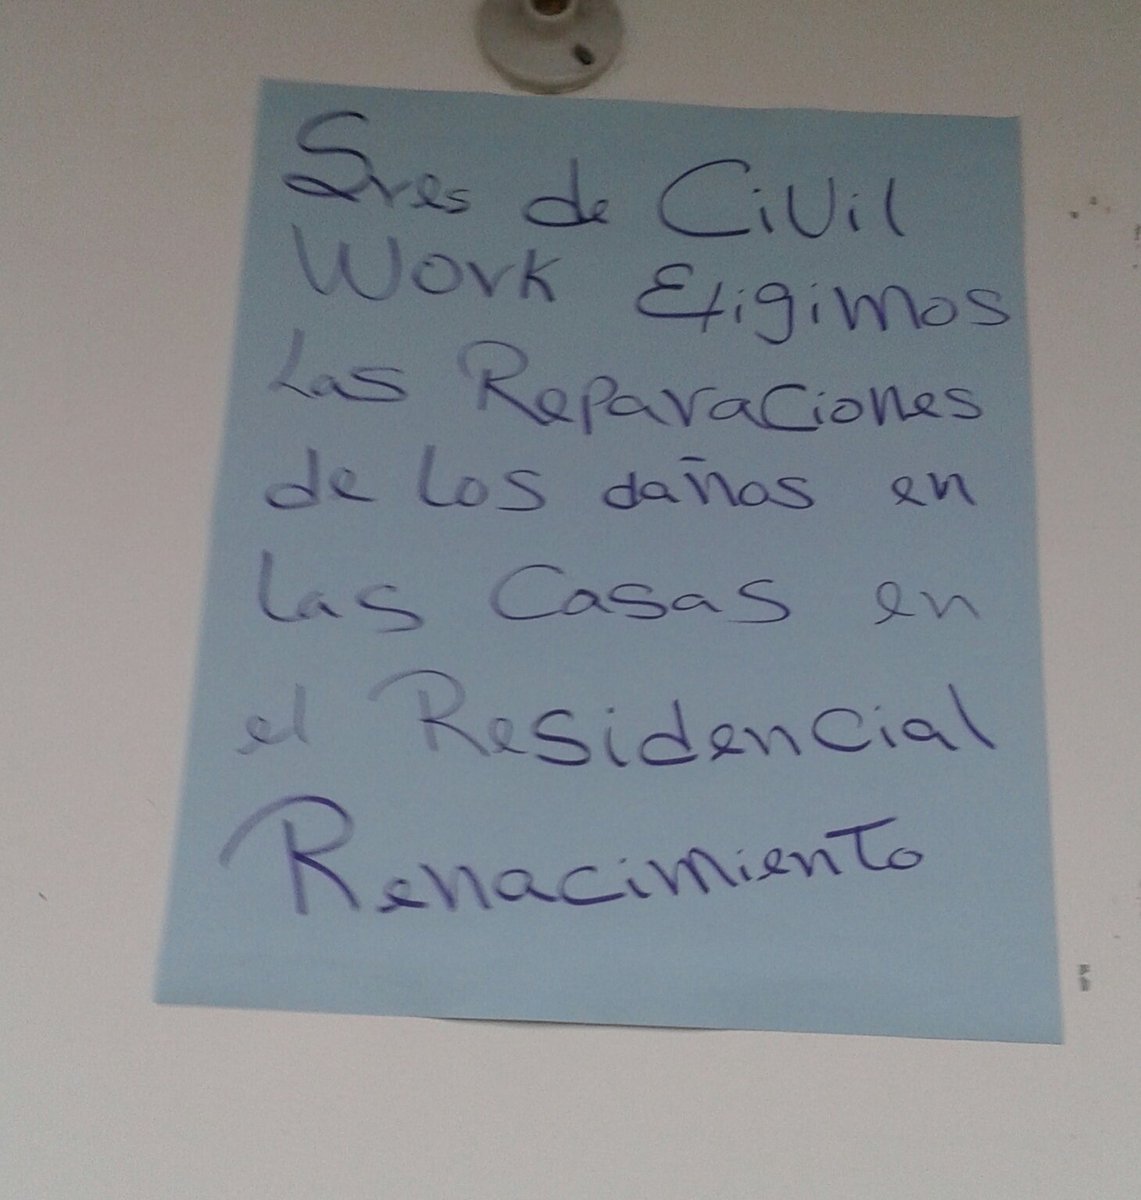 Sres de Civil
Work Exigimos
Las Reparaciones
de los daños en
las Casas en
el Residencial
Renacimiento